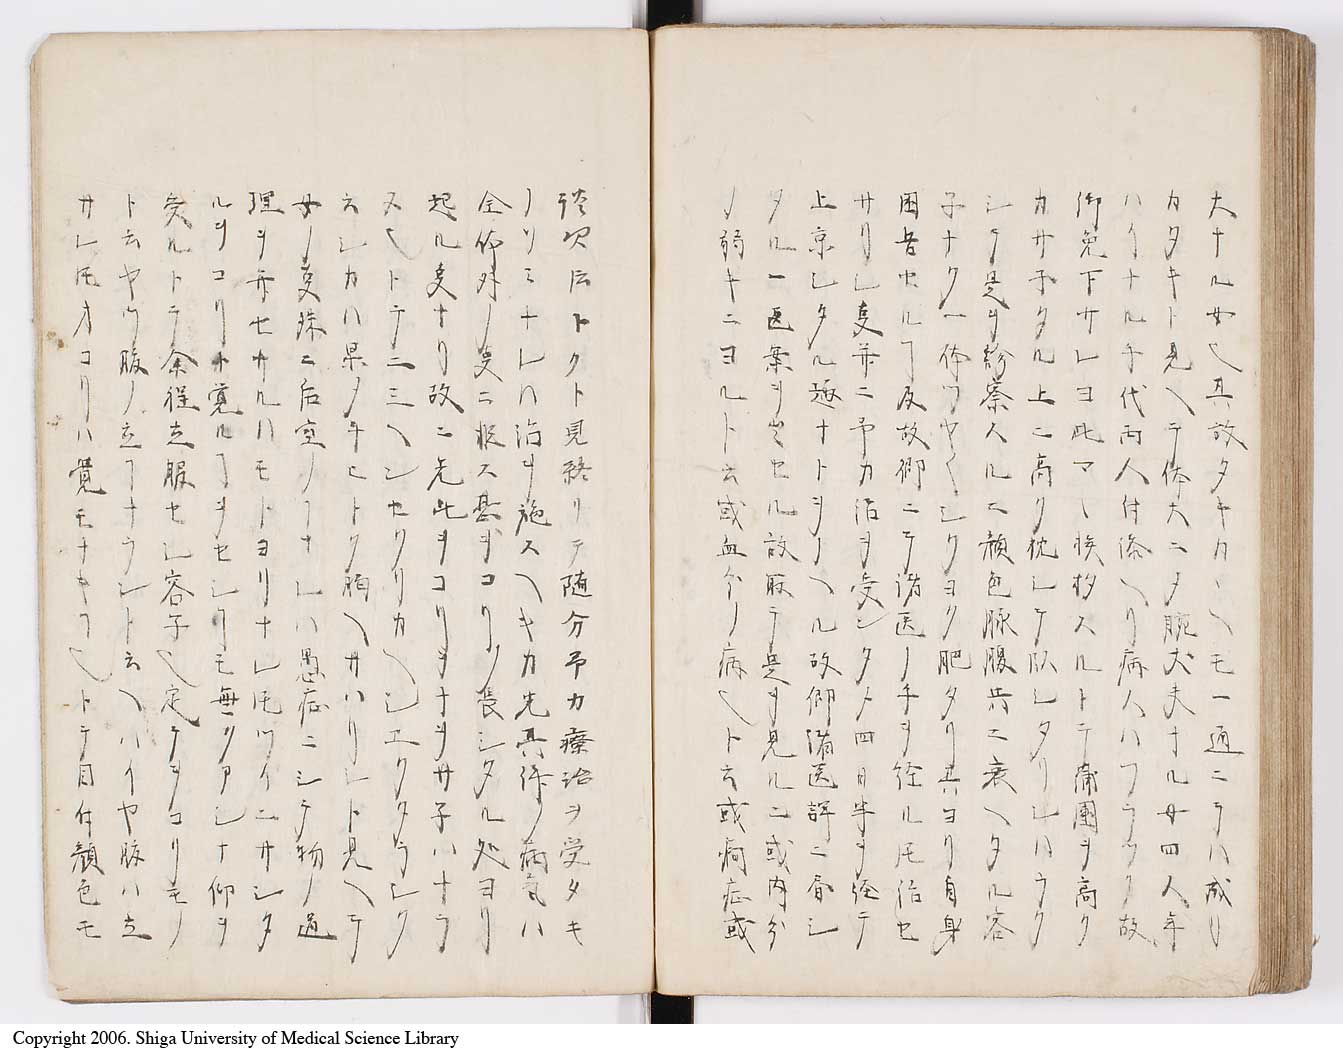 大ナル女也其故タキカヽヘモ一通ニテハ成リ
カタキト見ヘテ体大ニタ腕丈夫ナル女四人年
ハイナル千代両人付添ヘリ病人ハフラツク故
御免下サレヨ此マヽ挨拶スルトテ蒲團ヲ高ク
カサ子タル上ニ高ク枕シテ臥シタリシハラク
シテ是ヲ診察スルニ顔色脉腹共ニ衰ヘタル容
子ナク一体ツヤ〱シクヨク肥タリ其ヨリ自身
困苦スルヿ及故郷ニテ諸医ノ手ヲ経ル𪜈治セ
サリシ叓并ニ予カ治ヲ受ンタト四日半ヲ経テ
上京シタル趣ナトヲノヘル故御備医
タル一医案ヲ出セル故取テ是ヲ見ルニ或内分
ノ弱キニヨルト云或血分ノ病也ト云或痾症或
談次ニトクト見終リテ随分予カ療治ヲ受タキ
ノソミナレハ治ヲ施スヘキカ先其許ノ病気ハ
全体外ノ叓ニ根ス甚ダコリノ長シタル処ヨリ
起ル叓ナリ故ニ先此ヲコリヲナヲサ子ハナラ
ヌ也トテ二三ヘンセクリカヘシエクタラシク
云シカハ果ノ手ヒトク胸ヘサハリシト見ヘテ
女ノ叓殊ニ后室ノヿナレハ愚症ニシテ物ノ道
理ヲ弁セサルハモトヨリナレ𪜈ツイニサシタ
ルヲコリヲ覚ルヿヲセシヿモ無クアシナ仰ヲ
受ルトテ余程立服セシ容子也定テヲコリモノ
トニヤウ服ノ立ヿナラントニヘハイヤ服ハ立
サレ𪜈オコリハ覚モナキヿ也トテ目付顔色モ